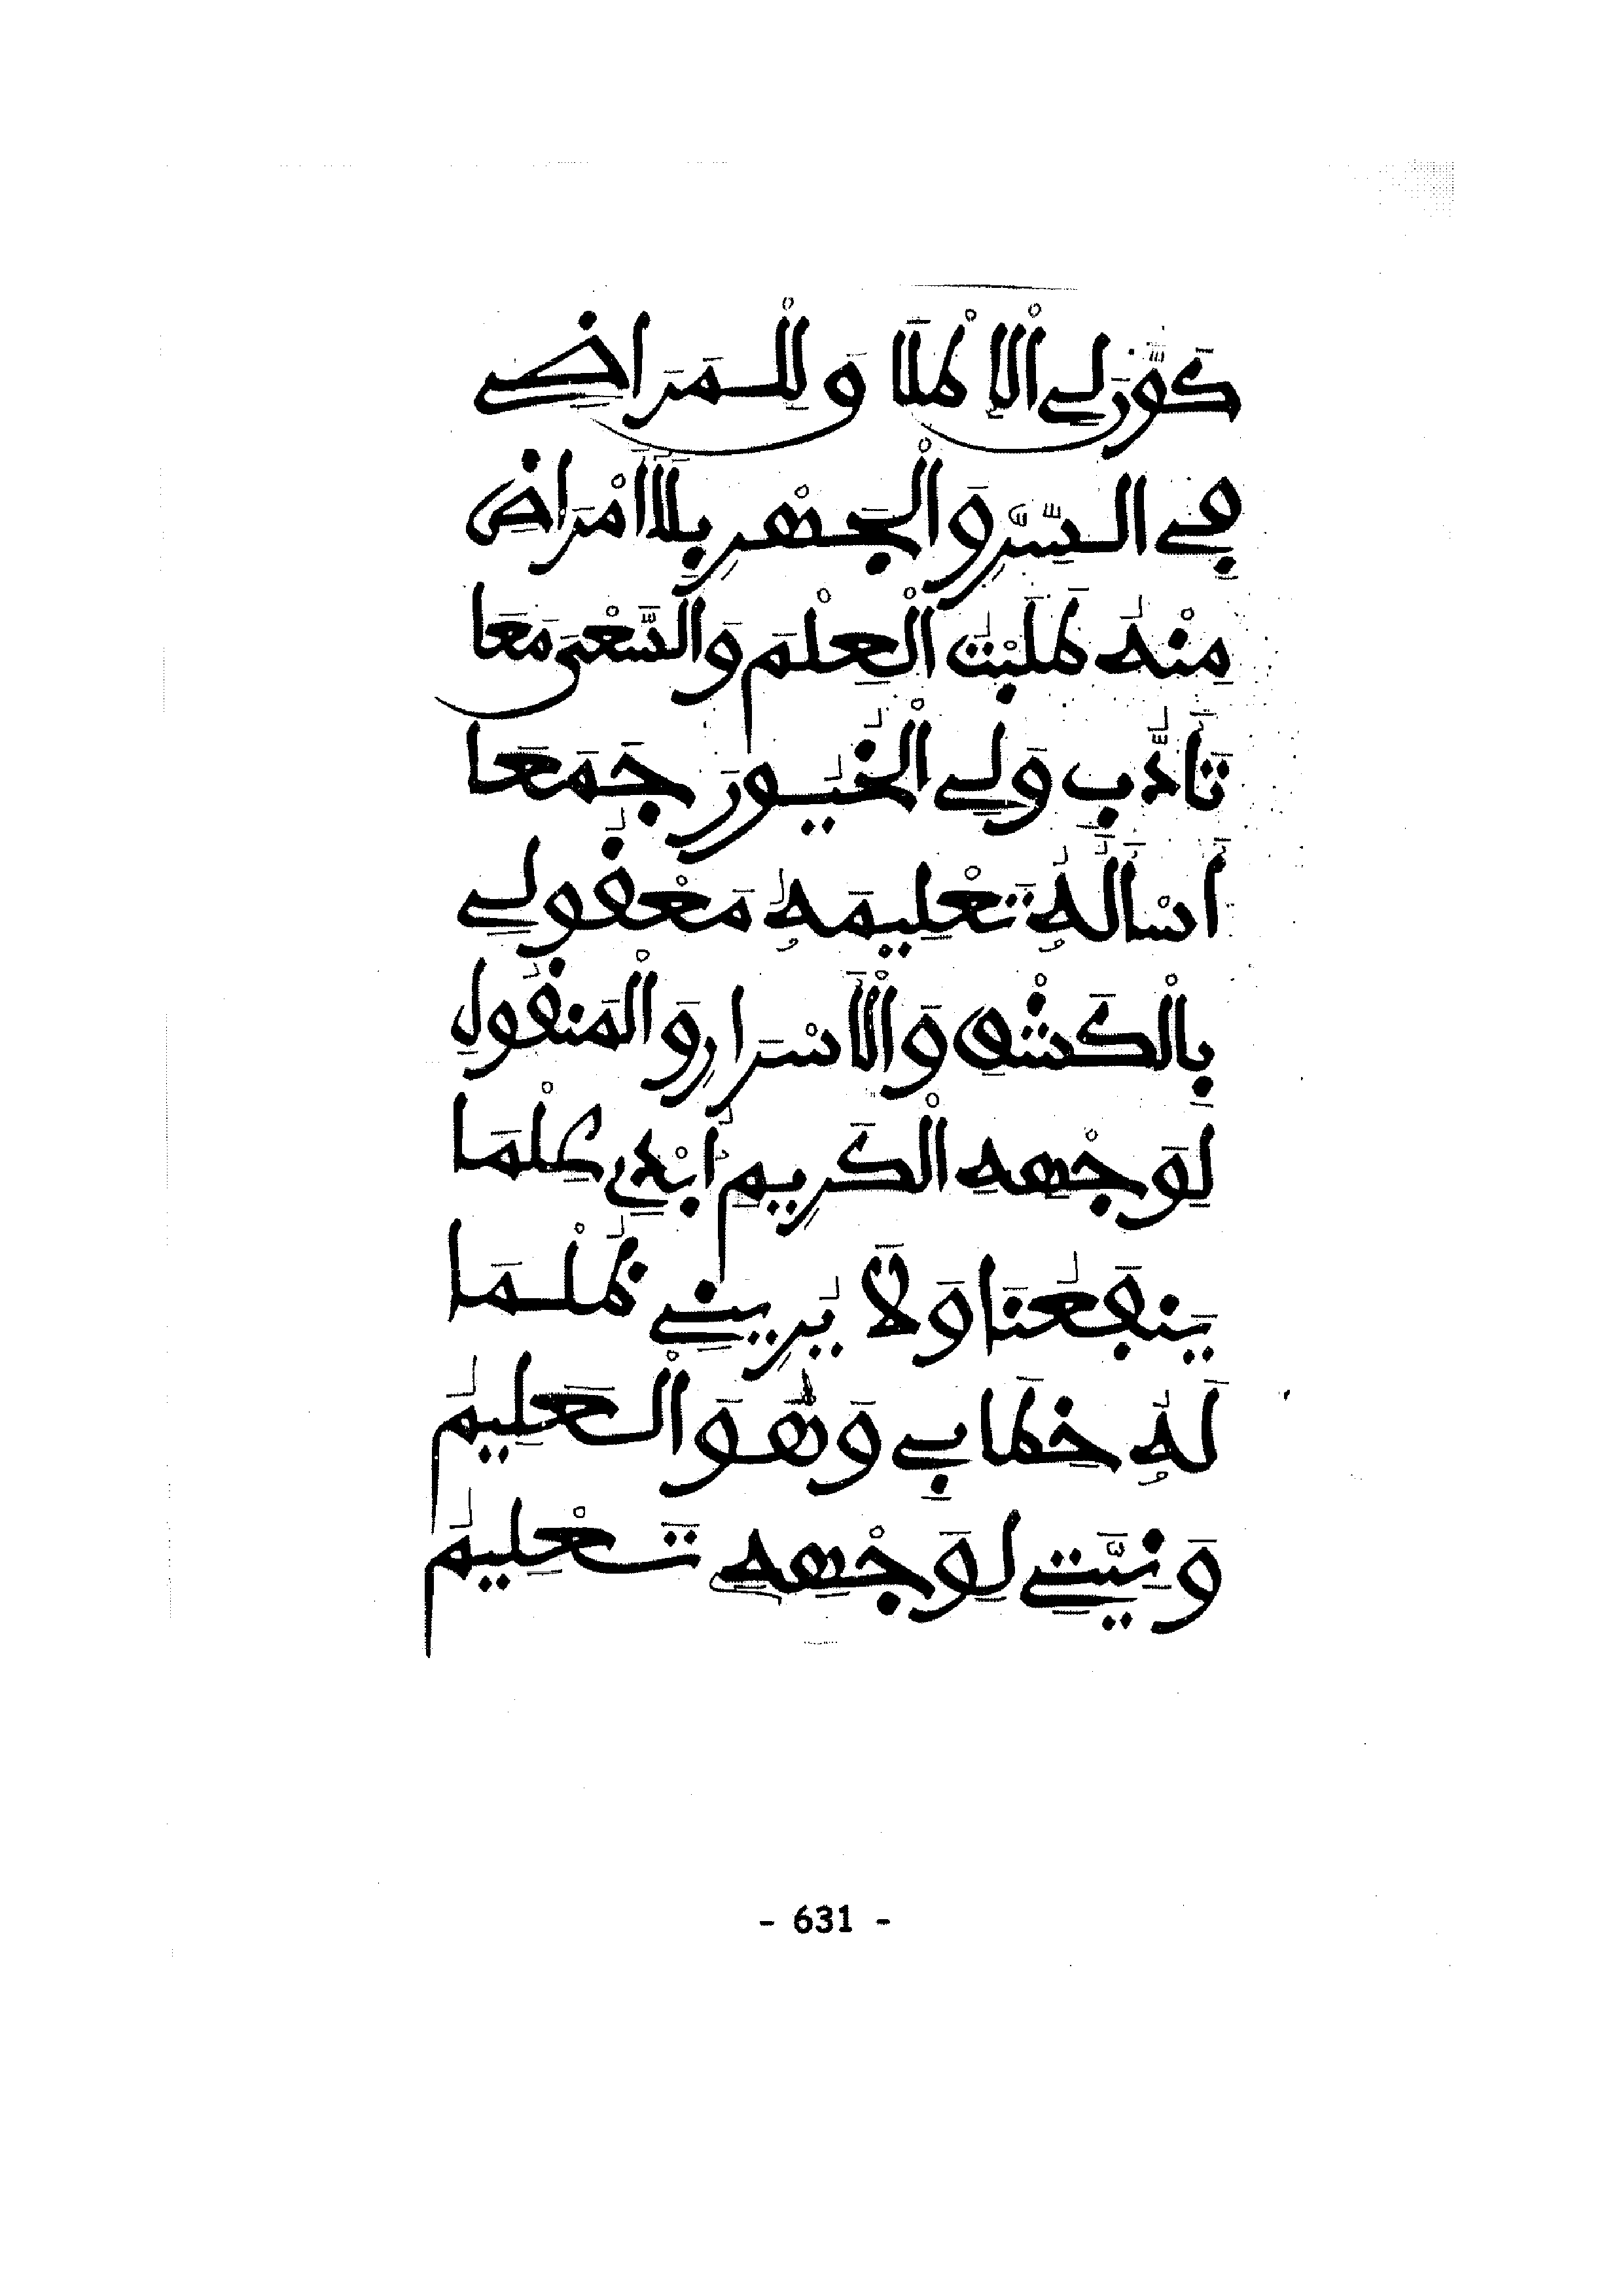 كَوَّرَ لِي الْاِطْلَا وَلِلْمَرَاضِي
فِي السِّرِّ وَالْجَهْرِ بِلَا اَمْرَاضِ
مِنْهُ طَلَبْتُ الْعِلْمَ وَالسَّعْيَ مَعَا
تَأَدُّبٍ وَلِي الْخُيُورَ جَمَعَا
أَسْأَلُهُ تَعْلِيمَهُ مَعْقُولِي
بِالْكَشْفِ وَالْأَسْرَارِ وَالْمَنْقُولِ
لِوَجْهِهِ الْكَرِيمِ أُبْدِي عِلْمَا
يَنْفَعُنَا وَلَا يُرِينِي ظُلْمَا
لَهُ خِطَابِي وَهُوَ الْعَلِيمُ
وَنِيَّتِي لِوَجْهِهِ تَعْلِيمُ
- 631 -